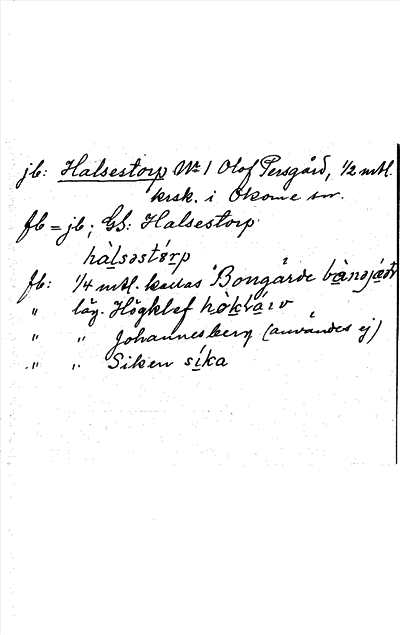 jb: Halsestorp No 1 Olof Persgård, 1/2 mtl.
krsk. i Okome sn.
fb = jb; GS: Halsestorp
hàlsəstǿrp
fb: 1/4 mtl. kallas Bongårde
" läg. Högklef
" " Johannesberg (användes ej)
" " Siken síka